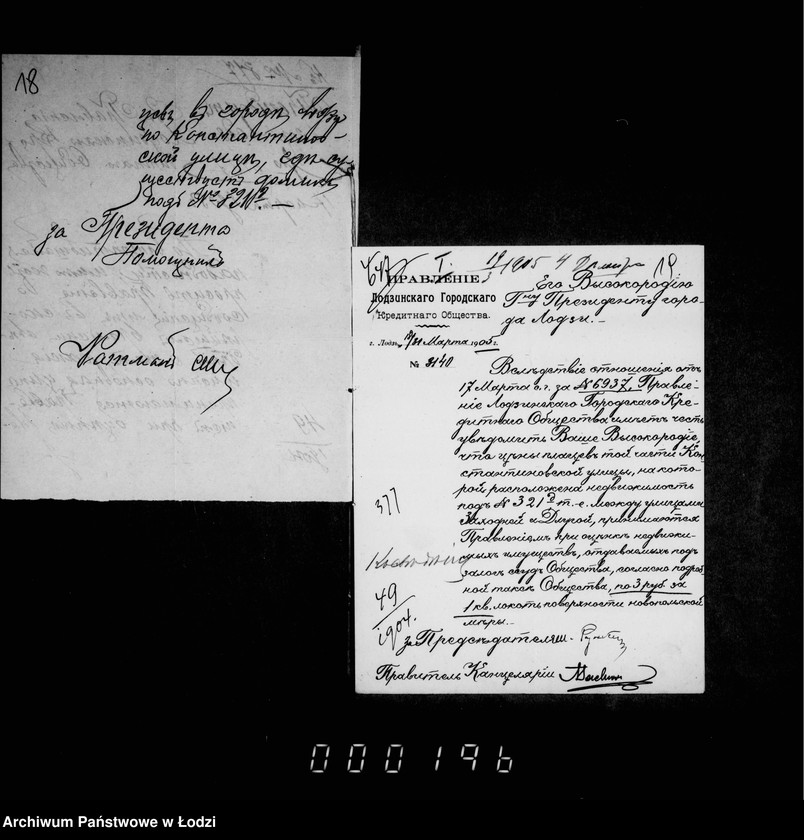 18
усъ, въ городѣ
по Константинов-
ской улицѣ, гдѣ су
ществуетъ домъ
подъ №
за Президента
Помощникъ
19
Т.
ПРАВЛЕНІЕ
Лодзинскаго Городскаго
Кредитнаго Общества.
г. Лодзь, Марта 1905 г.
№ 3140
Его Высокородію
Г-ну Президенту горо-
да Лодзи.-
Вслѣдствіе отношенія отъ
17 Марта с.г. за № 6937, Правле-
ніе Лодзинскаго Городскаго Кре-
дитнаго Общества имѣетъ честь
увѣдомить Ваше Высокородіе,
что цѣны плацевъ той части Кон
стантиновской улицы, на кото-
рой расположена недвижимость
подъ № 321 т.-е. между улицами
Заходной и Длугой, принимаются
Правленіемъ при оцѣнкѣ недвижи-
мыхъ имуществъ, отдаваемыхъ подъ
залогъ ссудъ Общества, согласно подроб
ной таксѣ Общества, по 3 руб за
1 кв. локоть поверхности новопольской
мѣры.-
377
49
1904.
за Предсѣдателя
Правитель Канцеляріи
000196
Archiwum Państwowe w Łodzi